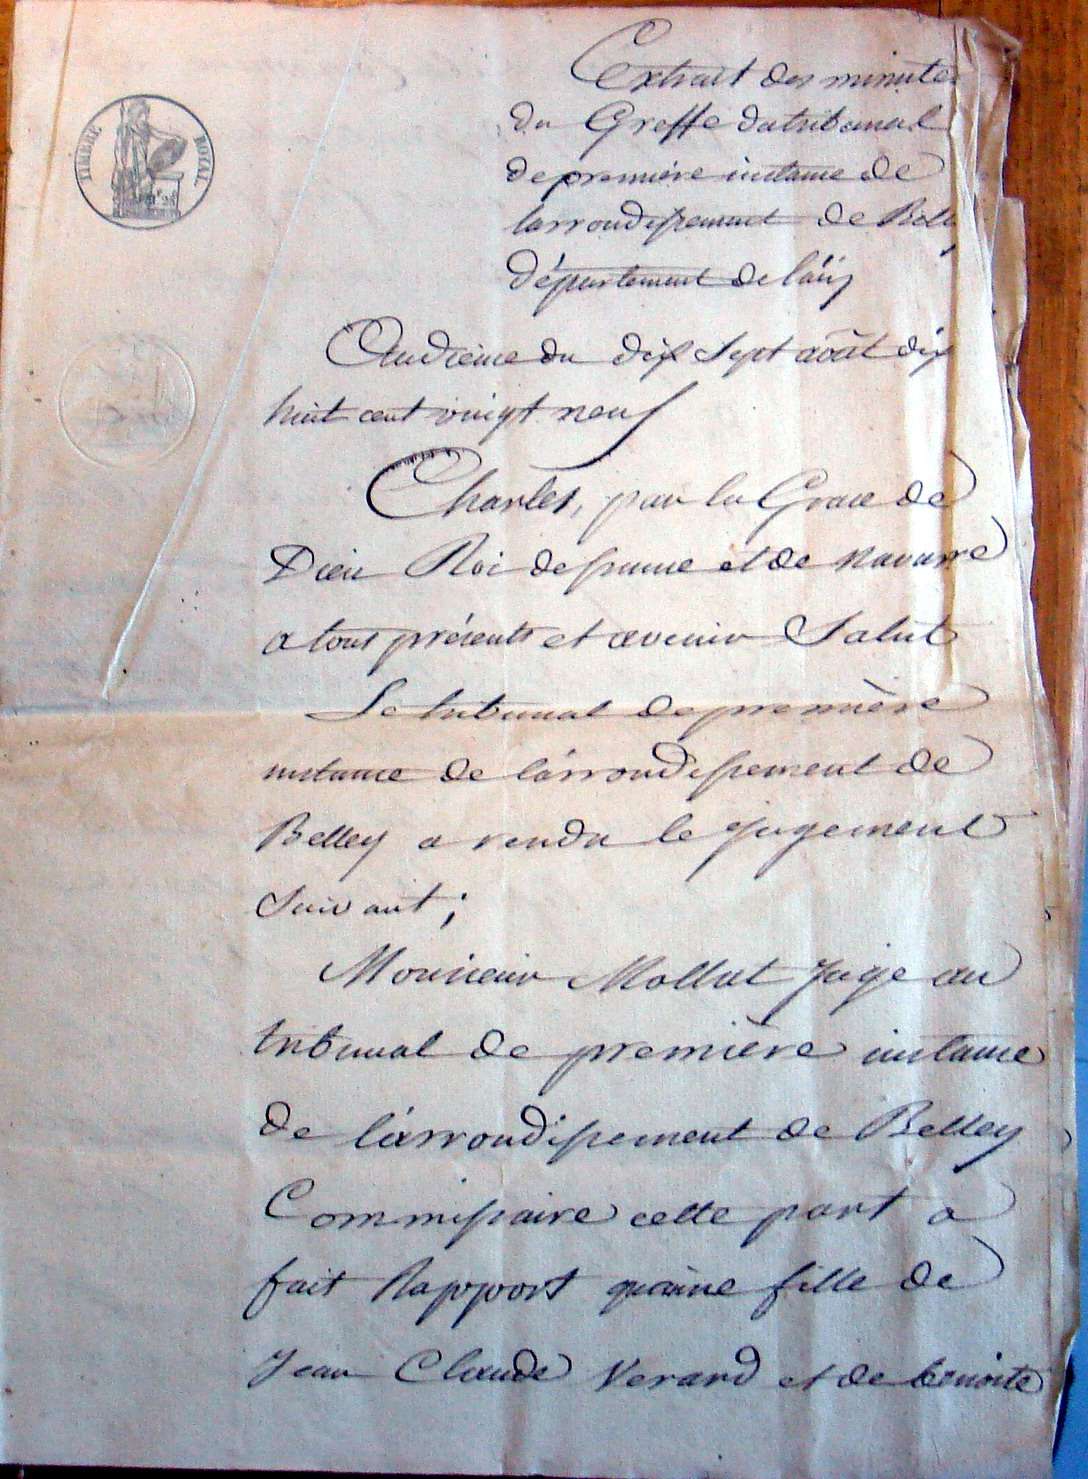 TIMBRE ROYAL
Extrait des minute
du Greffe du tribunal
de première instance de
larrondissement de Belle
département de l'ain
Audience du dix sept août dix
huit cent vingt neuf
Charles, par la Grace de
Dieu Roi de france et de Navarre
a tous présents et avenir Salut
Le tribunal de première
instance de l'arrondissement de
Belley a rendu le jugement
Suivant ;
Monsieur Mollet Juge au
tribunal de première instance
de l'arrondissement de Belley
Commissaire cette part a
fait Rapport qu'une fille de
Jean Claude Verard et de benoite